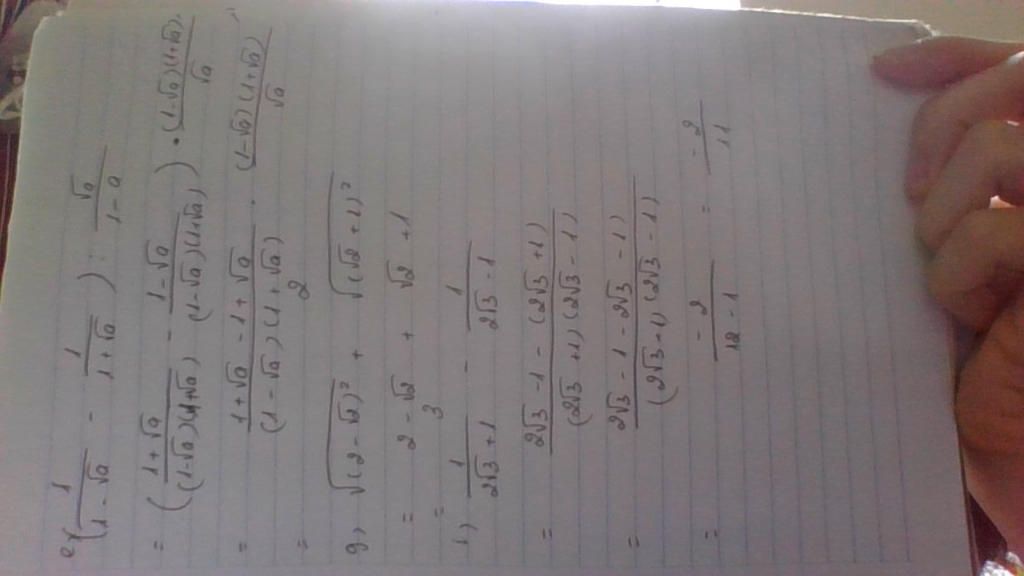 e) (1/(1-√a) - 1/(1+√a)) : √a/(1-a)
= ((1+√a)/((1-√a)(1+√a)) - (1-√a)/((1-√a)(1+√a))) · ((1-√a)(1+√a))/√a
= (1+√a-1+√a)/((1-√a)(1+√a)) · ((1-√a)(1+√a))/√a
= 2
g) √((2-√2)²) + √((√2+1)²)
= 2-√2 + √2+1
= 3
i) 1/(2√3+1) - 1/(2√3-1)
= (2√3-1-(2√3+1))/((2√3+1)(2√3-1))
= (2√3-1-2√3-1)/((2√3+1)(2√3-1))
= -2/(12-1) = -2/11